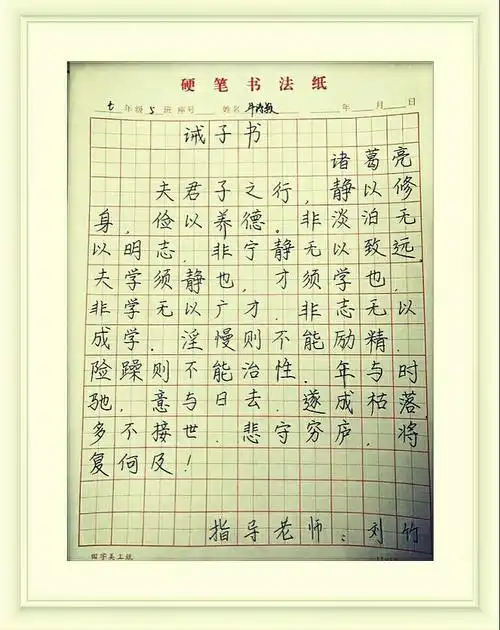 硬笔书法纸
七年级5班 座号 姓名 年 月 日
诫子书
诸葛亮
夫君子之行,静以修
身,俭以养德。非淡泊无
以明志,非宁静无以致远.
夫学须静也,才须学也,
非学无以广才.非志无以
成学.淫慢则不能励精.
险躁则不能治性.年与时
驰,意与日去.遂成枯落
多不接世.悲守穷庐,将
复何及!
指导老师:刘竹
田字美工纸